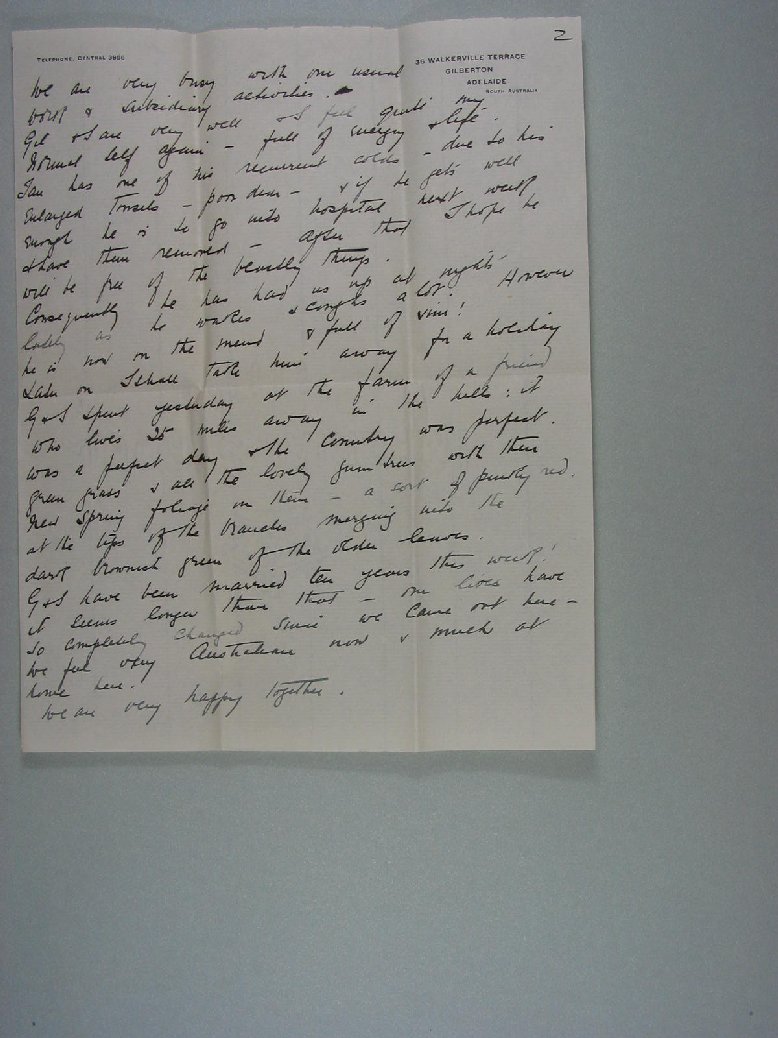 2
TELEPHONE, CENTRAL 3866
36 WALKERVILLE TERRACE
GILBERTON
ADELAIDE
SOUTH AUSTRALIA
We are very busy with our usual
work & subsidiary activities.
Gil & I are very well & I feel quite my
normal self again – full of energy & life.
Ian has one of his recurrent colds – due to his
enlarged Tonsils – poor dear – & if he gets well
enough he is to go into hospital next week
& have them removed – after that I hope he
will be free of the beastly things.
Consequently he has had us up at nights
lately as he wakes & coughs a lot. However
he is now on the mend & full of vim!
Later on I shall take him away for a holiday
G & I spent yesterday at the farm of a friend
who lives 25 miles away in the hills: it
was a perfect day & the country was perfect.
green grass & all the lovely gum trees with their
new spring foliage on them – a sort of pinky red.
at the tips of the branches merging into the
dark brownish green of the older leaves.
G & I have been married ten years this week!
it seems longer than that – our lives have
so completely changed since we came out here –
We feel very Australian now & much at
home here.
We are very happy together.